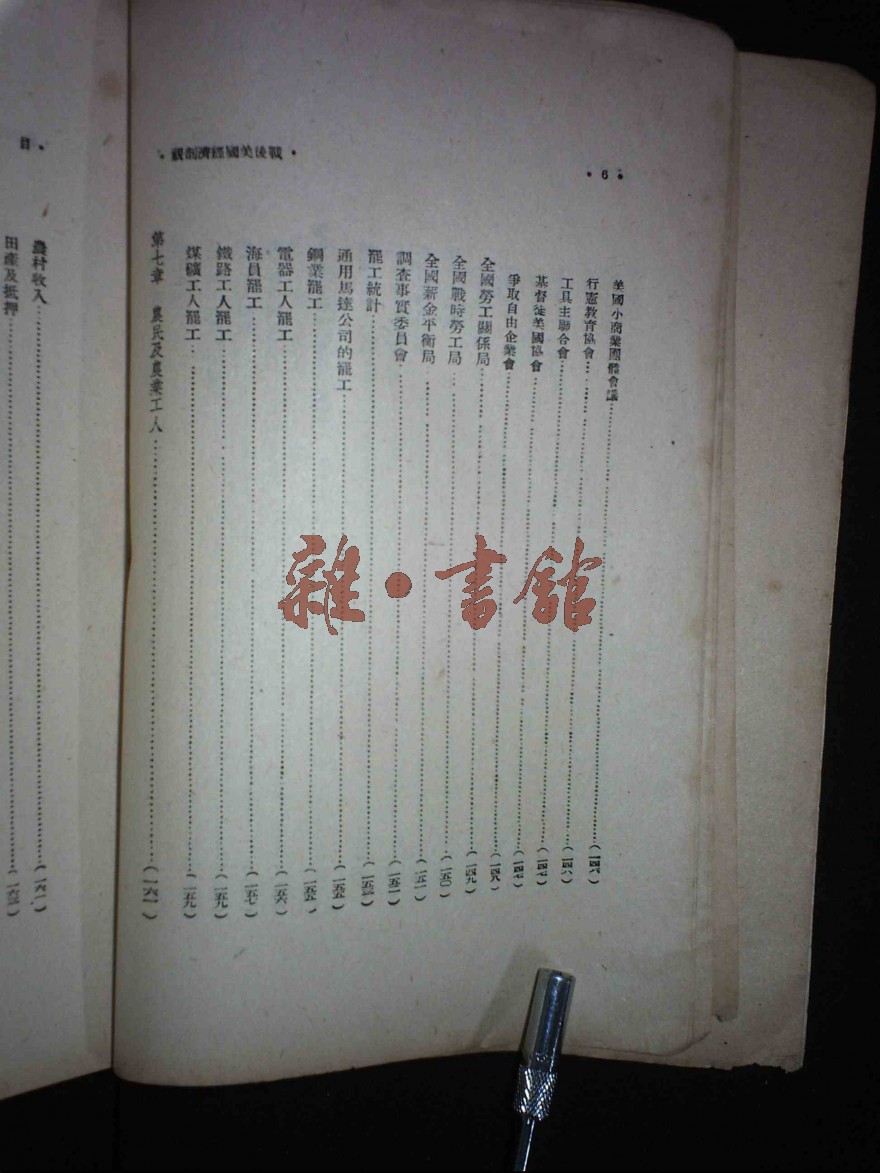 ・6・
・戰後美國經濟剖視・
美國小商業團體會議……(一四六)
行憲教育協會……(一四六)
工具主聯合會……(一四六)
基督徒美國協會……(一四七)
爭取自由企業會……(一四七)
全國勞工關係局……(一四八)
全國戰時勞工局……(一四九)
全國薪金平衡局……(一五〇)
調查事實委員會……(一五一)
罷工統計……(一五三)
通用馬達公司的罷工……(一五五)
鋼業罷工……(一五五)
電器工人罷工……(一五六)
海員罷工……(一五七)
鐵路工人罷工……(一五九)
煤礦工人罷工……(一五九)
第七章 農民及農業工人……(一六一)
目・
農村收入……(一六一)
田產及抵押……
雜・書館